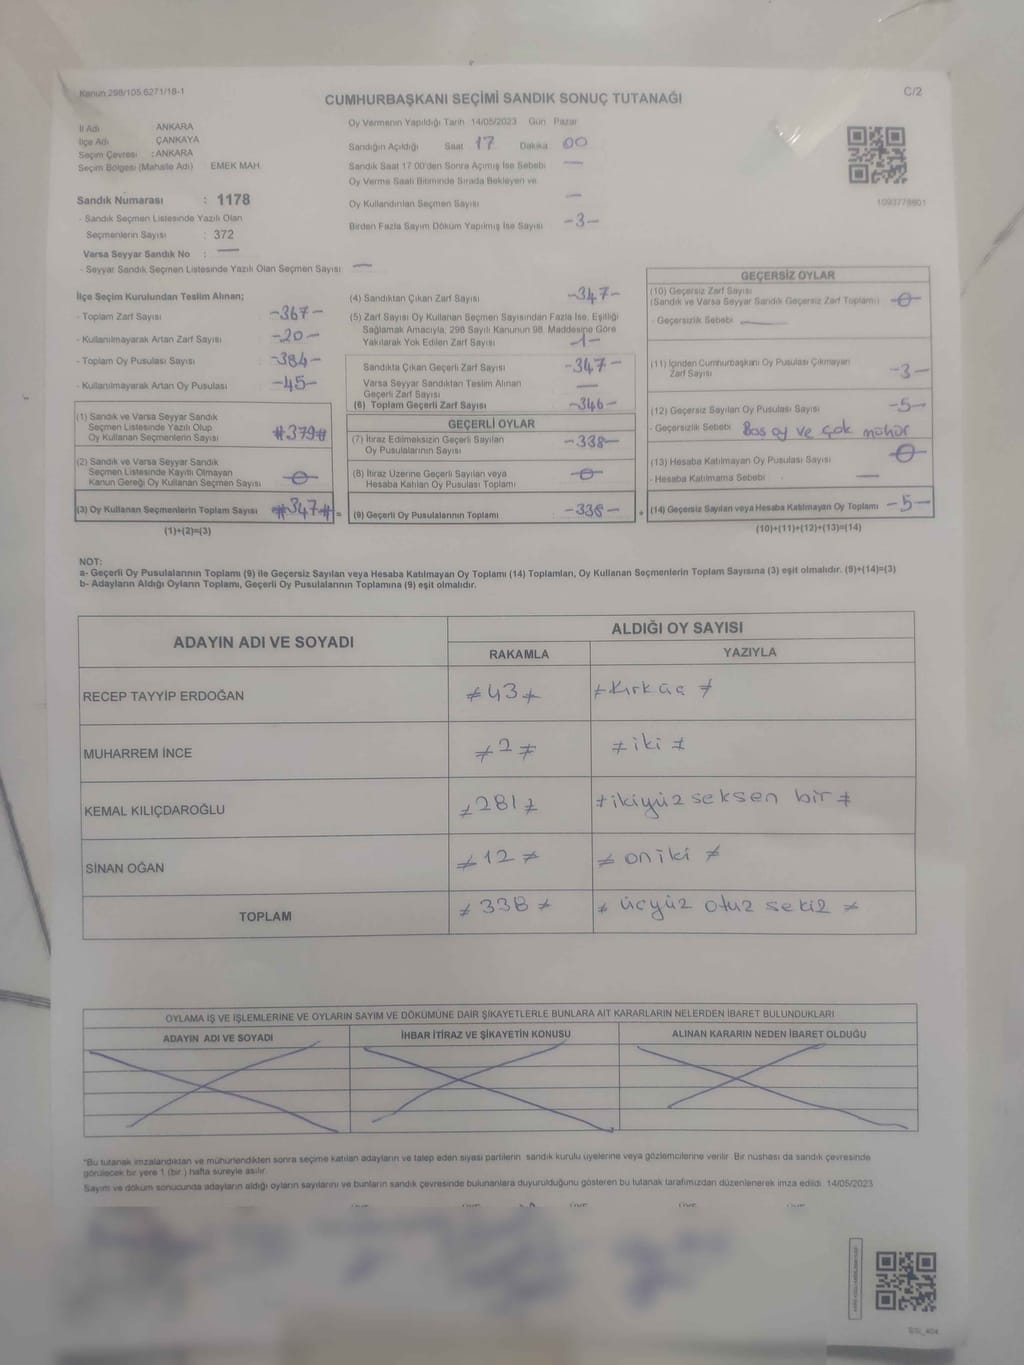 Kanun 298/105,6271/18-1
C/2
CUMHURBAŞKANI SEÇİMİ SANDIK SONUÇ TUTANAĞI
İl Adı ANKARA
İlçe Adı ÇANKAYA
Seçim Çevresi : ANKARA
Seçim Bölgesi (Mahalle Adı) EMEK MAH.
Sandık Numarası : 1178
- Sandık Seçmen Listesinde Yazılı Olan
Seçmenlerin Sayısı : 372
Varsa Seyyar Sandık No : —
- Seyyar Sandık Seçmen Listesinde Yazılı Olan Seçmen Sayısı —
Oy Vermenin Yapıldığı Tarih 14/05/2023 Gün Pazar
Sandığın Açıldığı Saat 17 Dakika 00
Sandık Saat 17.00'den Sonra Açımış İse Sebebi —
Oy Verme Saati Bitiminde Sırada Bekleyen ve
Oy Kullandırılan Seçmen Sayısı —
Birden Fazla Sayım Döküm Yapılmış İse Sayısı -3-
1093778801
İlçe Seçim Kurulundan Teslim Alınan;
- Toplam Zarf Sayısı -367-
- Kullanılmayarak Artan Zarf Sayısı -20-
- Toplam Oy Pusulası Sayısı -384-
- Kullanılmayarak Artan Oy Pusulası -45-
(1) Sandık ve Varsa Seyyar Sandık
Seçmen Listesinde Yazılı Olup
Oy Kullanan Seçmenlerin Sayısı #379#
(2) Sandık ve Varsa Seyyar Sandık
Seçmen Listesinde Kayıtlı Olmayan
Kanun Gereği Oy Kullanan Seçmen Sayısı -0-
(3) Oy Kullanan Seçmenlerin Toplam Sayısı #347# =
(1)+(2)=(3)
(4) Sandıktan Çıkan Zarf Sayısı -347-
(5) Zarf Sayısı Oy Kullanan Seçmen Sayısından Fazla İse, Eşitliği
Sağlamak Amacıyla, 298 Sayılı Kanunun 98. Maddesine Göre
Yakılarak Yok Edilen Zarf Sayısı -1-
Sandıkta Çıkan Geçerli Zarf Sayısı -347-
Varsa Seyyar Sandıktan Teslim Alınan
Geçerli Zarf Sayısı —
(6) Toplam Geçerli Zarf Sayısı -346-
GEÇERLİ OYLAR
(7) İtiraz Edilmeksizin Geçerli Sayılan
Oy Pusulalarının Sayısı -338-
(8) İtiraz Üzerine Geçerli Sayılan veya
Hesaba Katılan Oy Pusulası Toplamı -0-
(9) Geçerli Oy Pusulalarının Toplamı -338- +
GEÇERSİZ OYLAR
(10) Geçersiz Zarf Sayısı
(Sandık ve Varsa Seyyar Sandık Geçersiz Zarf Toplamı) -0-
- Geçersizlik Sebebi —
(11) İçinden Cumhurbaşkanı Oy Pusulası Çıkmayan
Zarf Sayısı -3-
(12) Geçersiz Sayılan Oy Pusulası Sayısı -5-
- Geçersizlik Sebebi Boş oy ve çok mühür
(13) Hesaba Katılmayan Oy Pusulası Sayısı -0-
- Hesaba Katılmama Sebebi —
(14) Geçersiz Sayılan veya Hesaba Katılmayan Oy Toplamı -5-
(10)+(11)+(12)+(13)=(14)
NOT:
a- Geçerli Oy Pusulalarının Toplamı (9) ile Geçersiz Sayılan veya Hesaba Katılmayan Oy Toplamı (14) Toplamları, Oy Kullanan Seçmenlerin Toplam Sayısına (3) eşit olmalıdır. (9)+(14)=(3)
b- Adayların Aldığı Oyların Toplamı, Geçerli Oy Pusulalarının Toplamına (9) eşit olmalıdır.
ADAYIN ADI VE SOYADI
ALDIĞI OY SAYISI
RAKAMLA YAZIYLA
RECEP TAYYİP ERDOĞAN ≠43≠ ≠Kırküç≠
MUHARREM İNCE ≠2≠ ≠iki≠
KEMAL KILIÇDAROĞLU ≠281≠ ≠ikiyüz seksen bir≠
SİNAN OĞAN ≠12≠ ≠oniki≠
TOPLAM ≠338≠ ≠üçyüz otuz sekiz≠
OYLAMA İŞ VE İŞLEMLERİNE VE OYLARIN SAYIM VE DÖKÜMÜNE DAİR ŞİKAYETLERLE BUNLARA AİT KARARLARIN NELERDEN İBARET BULUNDUKLARI
ADAYIN ADI VE SOYADI İHBAR İTİRAZ VE ŞİKAYETİN KONUSU ALINAN KARARIN NEDEN İBARET OLDUĞU
*Bu tutanak imzalandıktan ve mühürlendikten sonra seçime katılan adayların ve talep eden siyasi partilerin sandık kurulu üyelerine veya gözlemcilerine verilir. Bir nüshası da sandık çevresinde
görülecek bir yere 1 (bir ) hafta süreyle asılır.
Sayım ve döküm sonucunda adayların aldığı oyların sayılarını ve bunların sandık çevresinde bulunanlara duyurulduğunu gösteren bu tutanak tarafımızdan düzenlenerek imza edildi. 14/05/2023